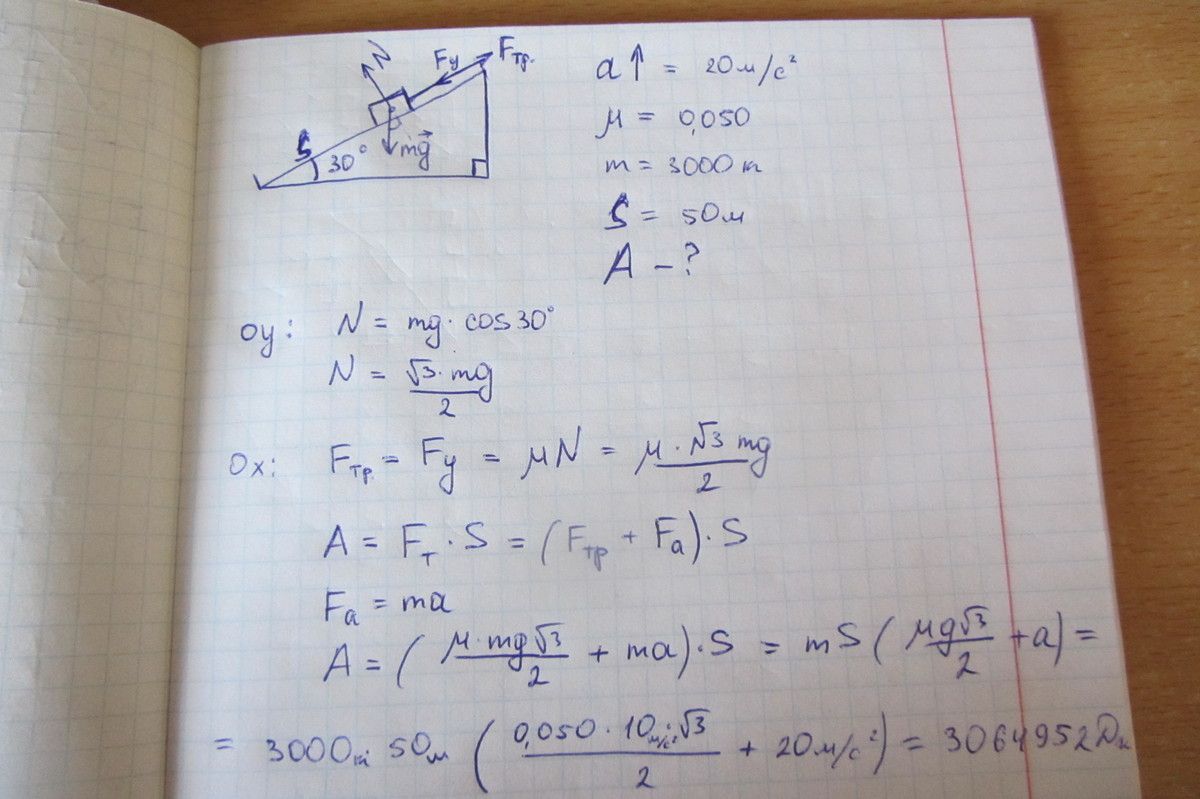 N Fy Fтр.
S 30° mg
a↑ = 20м/с²
μ = 0,050
m = 3000 кг
S = 50м
A – ?
Oy: N = mg · cos30°
N = √3 · mg / 2
Ox: Fтр. = Fy = μN = μ · √3 mg / 2
A = Fт · S = (Fтр + Fa) · S
Fa = ma
A = ( μ · mg√3 / 2 + ma) · S = mS ( μg√3 / 2 + a) =
= 3000кг 50м ( 0,050 · 10м/с² · √3 / 2 + 20м/с² ) = 3064952Дж